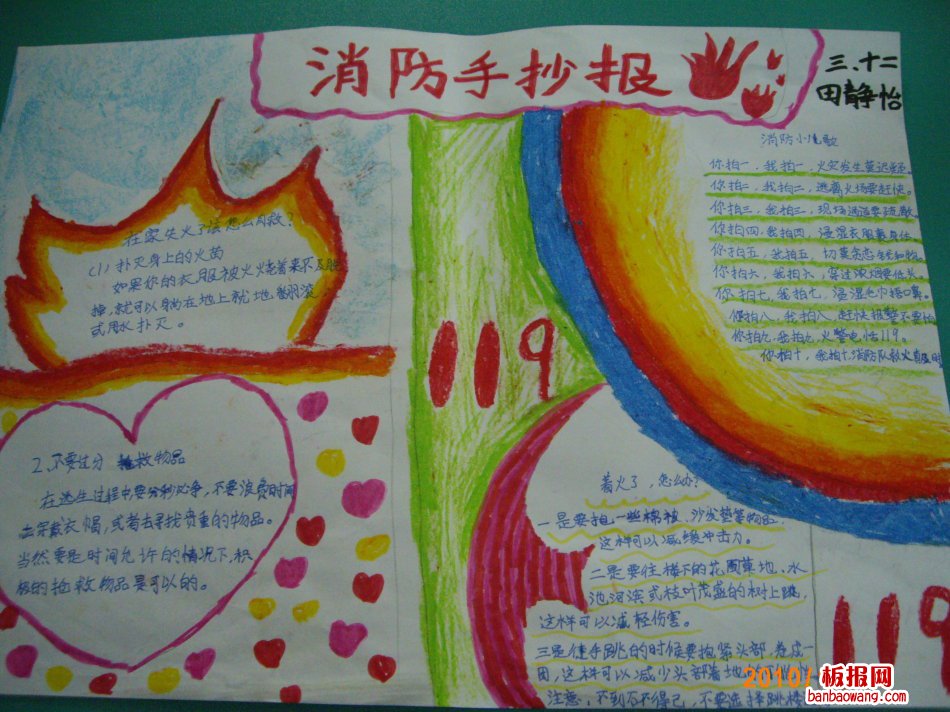 消防手抄报
三、十二
田静怡
消防小儿歌
你拍一，我拍一，火灾发生莫迟疑。
你拍二，我拍二，逃离火场要赶快。
你拍三，我拍三，现场通道要疏散。
你拍四，我拍四，浸湿衣服裹身体。
你拍五，我拍五，切莫贪恋钱和物。
你拍六，我拍六，穿过浓烟要低头。
你拍七，我拍七，浸湿毛巾捂口鼻。
你拍八，我拍八，赶快报警不要怕
你拍九，我拍九，火警电话119。
你拍十，我拍十，消防队救火真及时
在家失火了该怎么自救？
(1)扑灭身上的火苗
如果你的衣服被火烧着来不及脱
掉，就可以躺在地上就地翻滚，
或用水扑灭。
119
2.不要过分抢救物品
在逃生过程中要分秒必争，不要浪费时间
去穿戴衣帽，或者去寻找贵重的物品。
当然要是时间允许的情况下，积
极的抢救物品是可以的。
着火了，怎么办？
一是要抱一些棉被、沙发垫等物品，
这样可以减缓冲击力。
二是要往楼下的花圃草地、水
池河滨或枝叶茂盛的树上跳，
这样可以减轻伤害。
三是徒手跳的时候要抱紧头部，卷成一
团，这样可以减少头部着地
注意，不到万不得已，不要选择跳楼
119
2010/
板报网
banbaowang.com